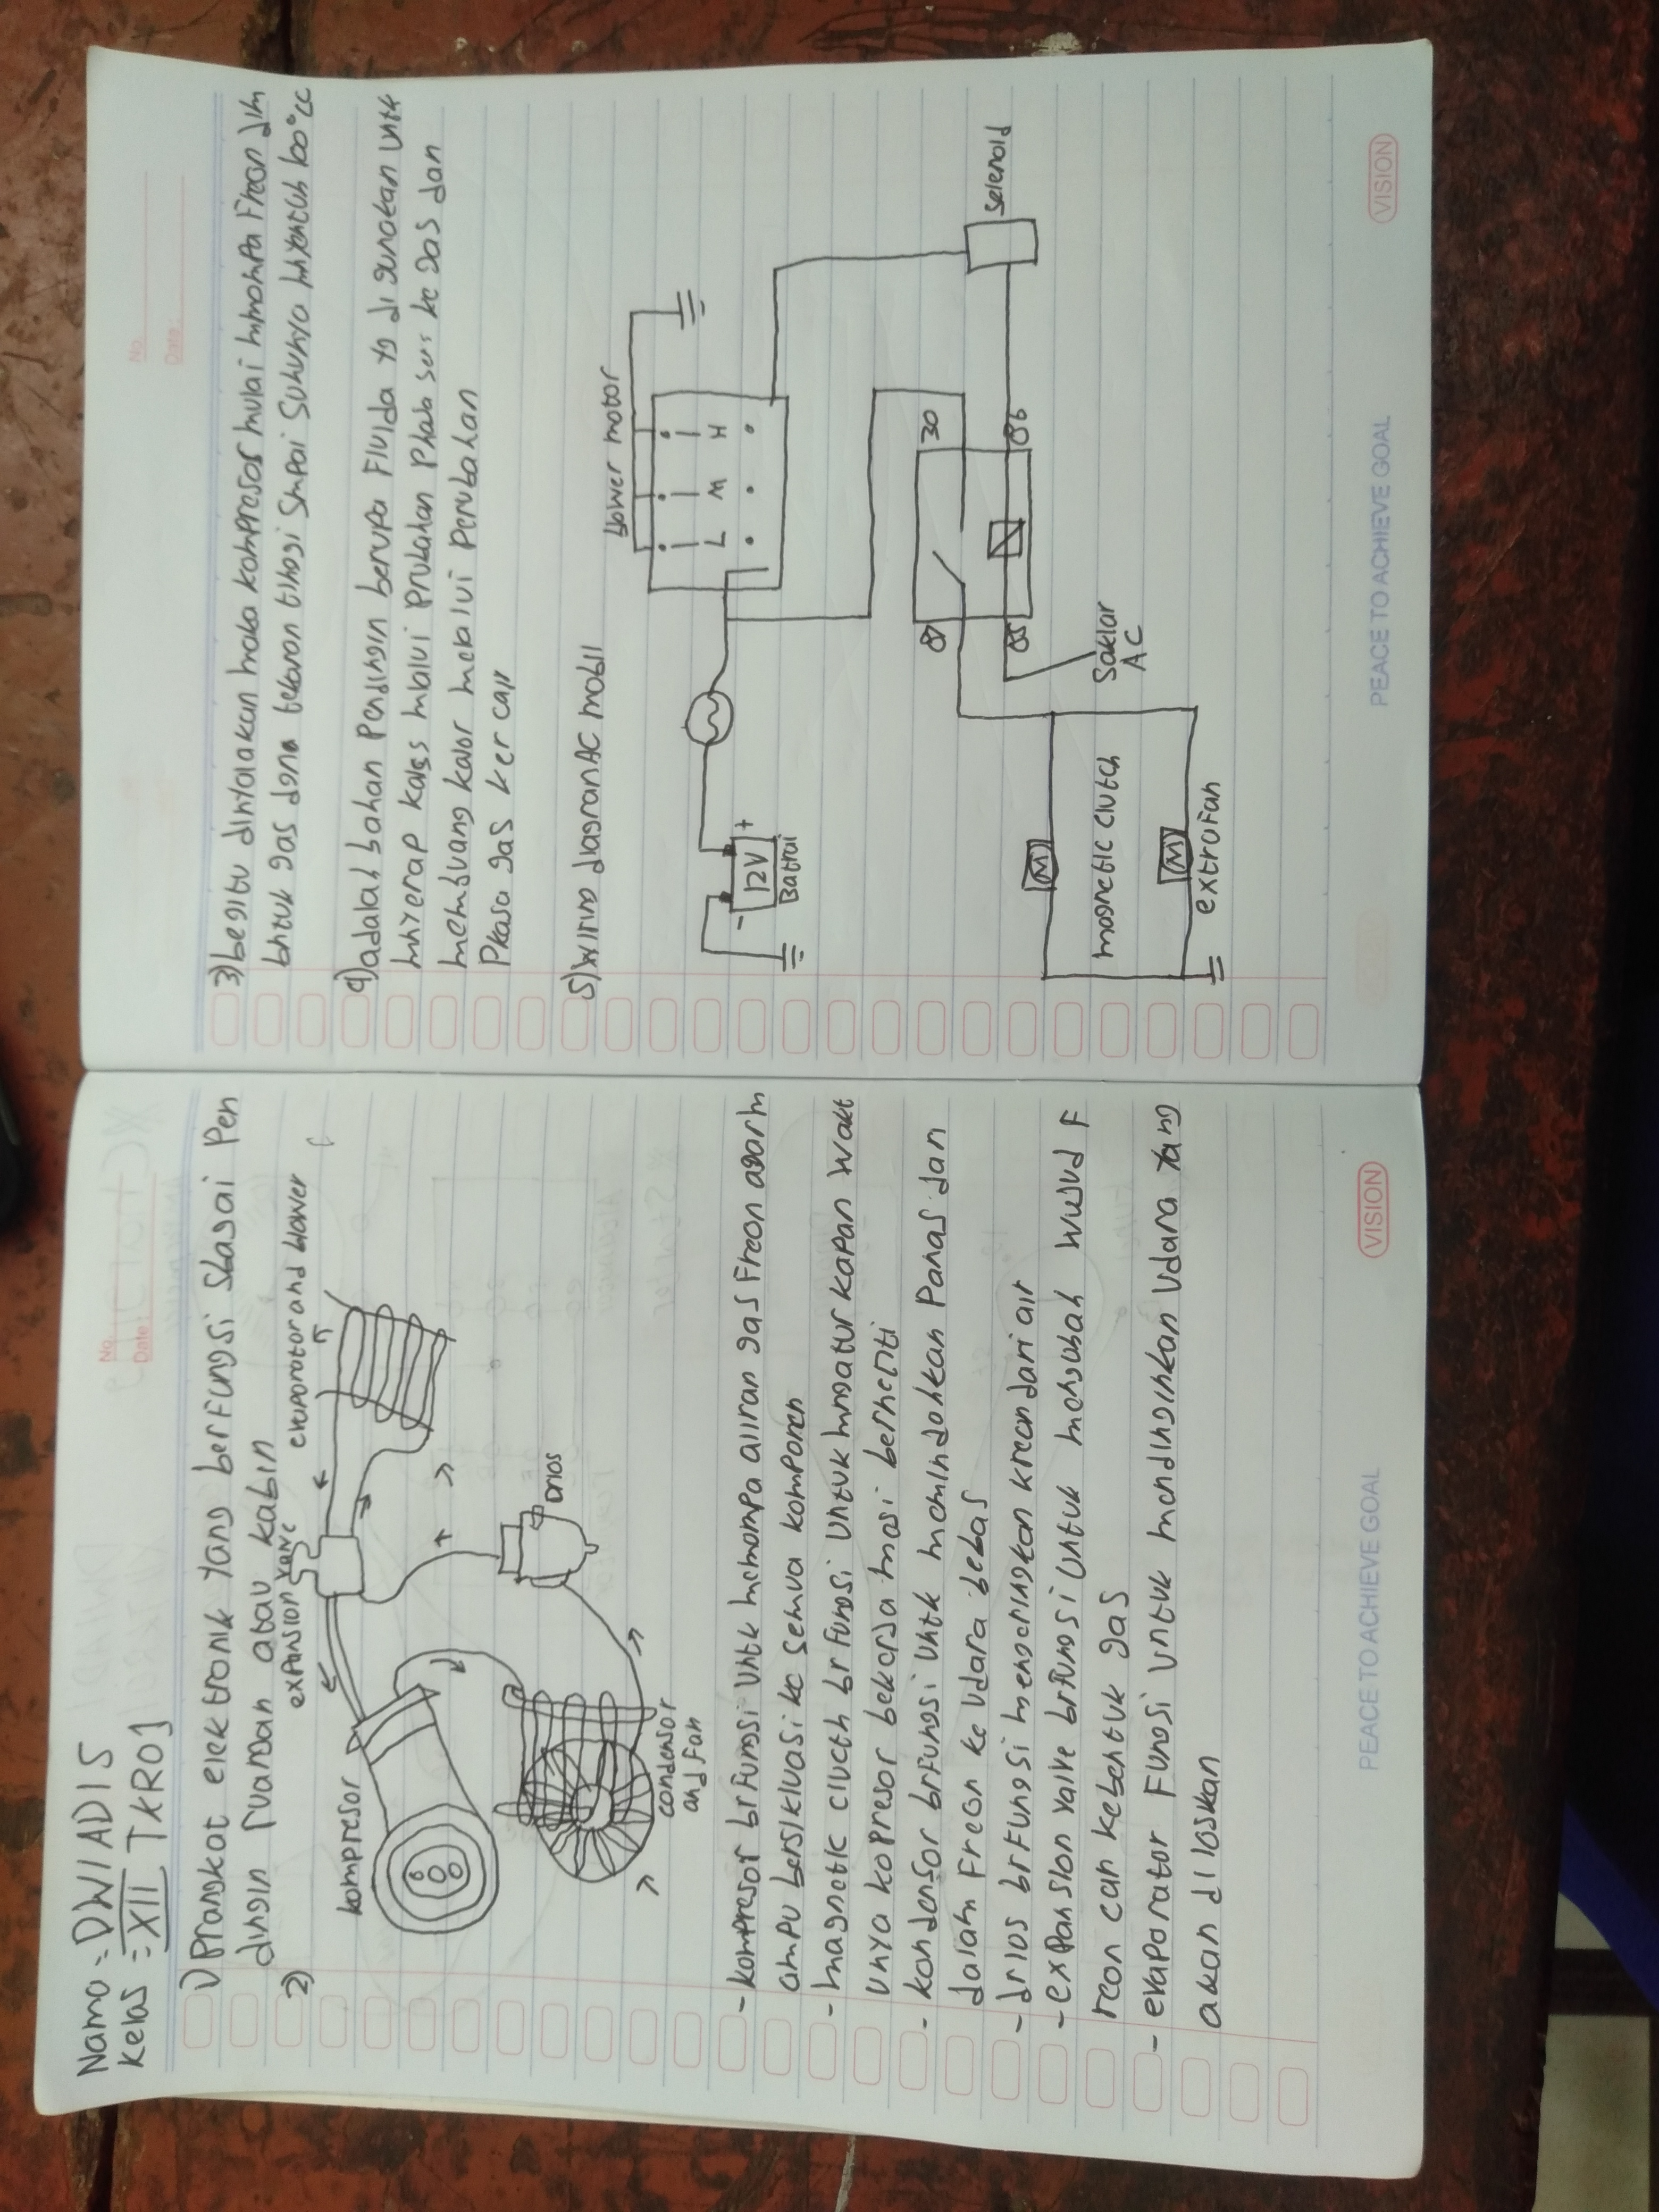 No.
Date:
Nama : DWI ADI S
Kelas = XII TKRO1
1) Prangkat elektronik yang berfungsi sbagai Pen
dingin ruangan atau kabin
2)
kompresor
expansion valve
evaporator and blower
Drios
condensor
and fan
- kompresor brfungsi untk memompa aliran gas freon agar m
ampu bersikluasi ke semua komponen
- magnetic clucth brfungsi untuk mngatur kapan wakt
unya kopresor bekerja mosi berhenti
- kondensor brfungsi untk memindahkan Panas dan
dalam freon ke udara bebas
- drios brfungsi mengeringkan kreon dari air
- expansion valve brfungsi untuk mengubah wujud f
reon cari kebentuk gas
- evaporator fungsi untuk mendinginkan udara yang
akan di loskan
VISION
PEACE TO ACHIEVE GOAL
No.
Date:
3) begitu dinyalakan maka kompresor mulai mmompa freon dlm
bntuk gas dgn tekanan tinggi smpai suhunya
4) adalah bahan Pendingin berupa fluida yg di gunakan untk
mnyerap kals mlalui prubahan phas
ke gas dan
membuang kalor melalui perubahan
Phasa gas ker cair
5) wiring diagran AC mobil
blower motor
L M H
12V
- +
Batrai
30
87
85
86
Saklar
AC
Selenoid
M
magnetic clutch
M
extra fan
VISION
PEACE TO ACHIEVE GOAL